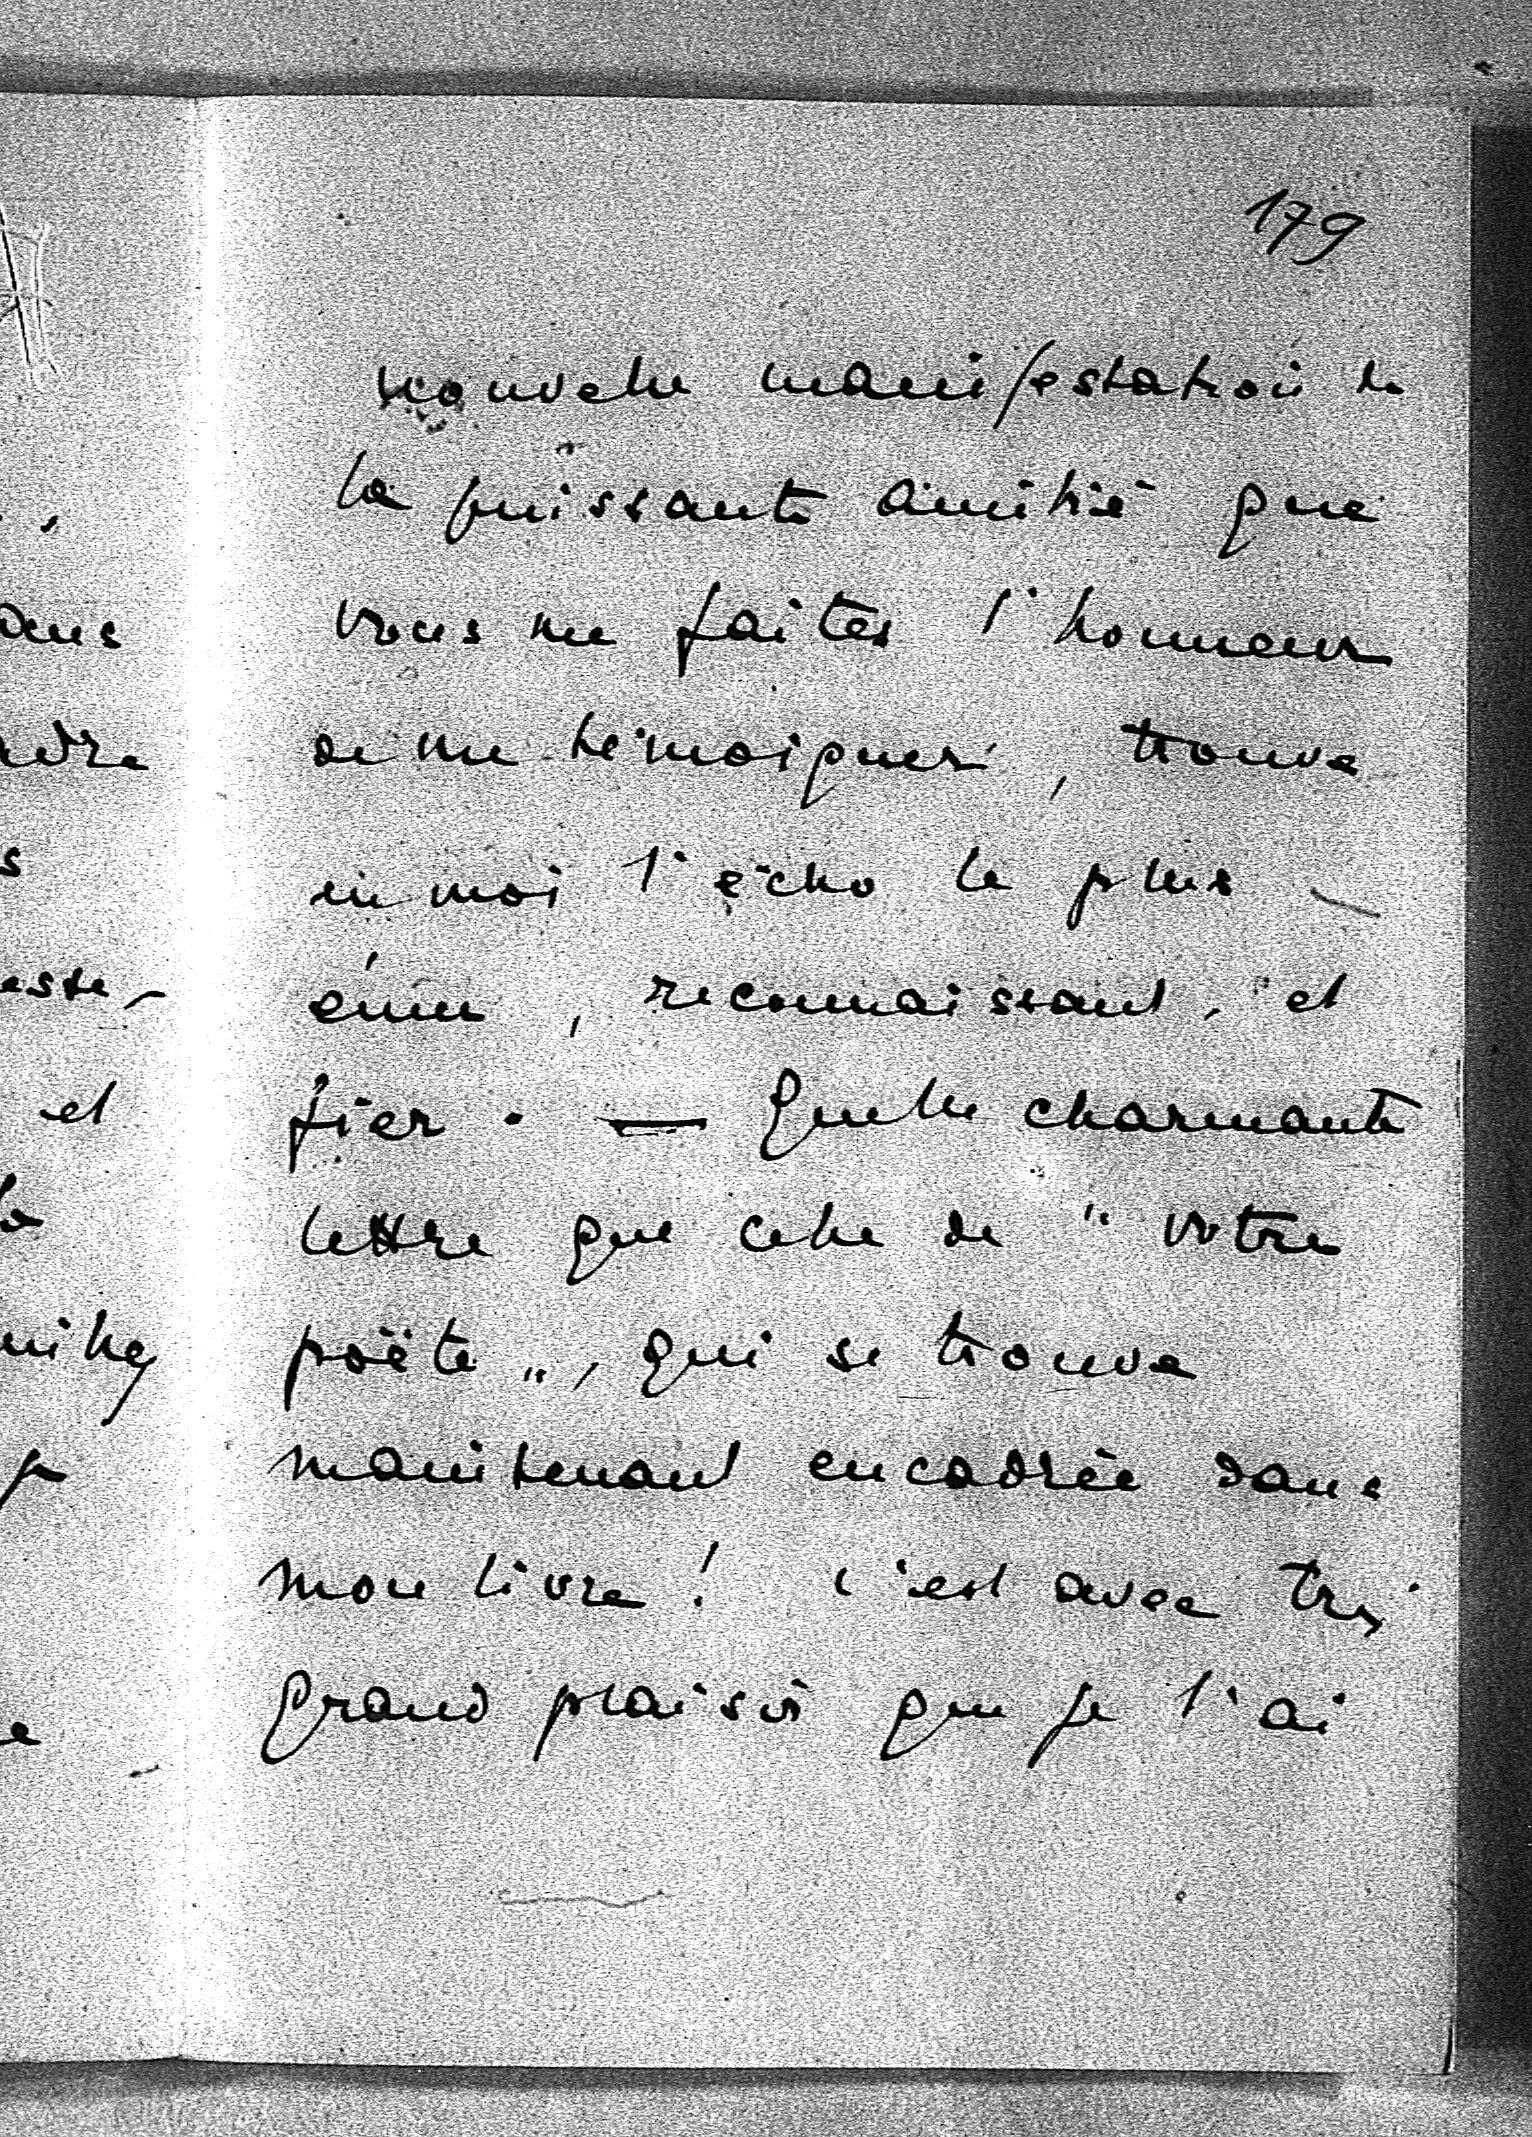 179
nouvelle manifestation de
la puissante amitié que
vous me faites l'honneur
de me témoigner, trouve
en moi l'écho le plus
ému, reconnaissant, et
fier. — Quelle charmante
lettre que celle de "votre
poëte", qui se trouve
maintenant encadrée dans
mon livre ! c'est avec très
grand plaisir que je l'ai
ans
adre
s
esse,
et
la